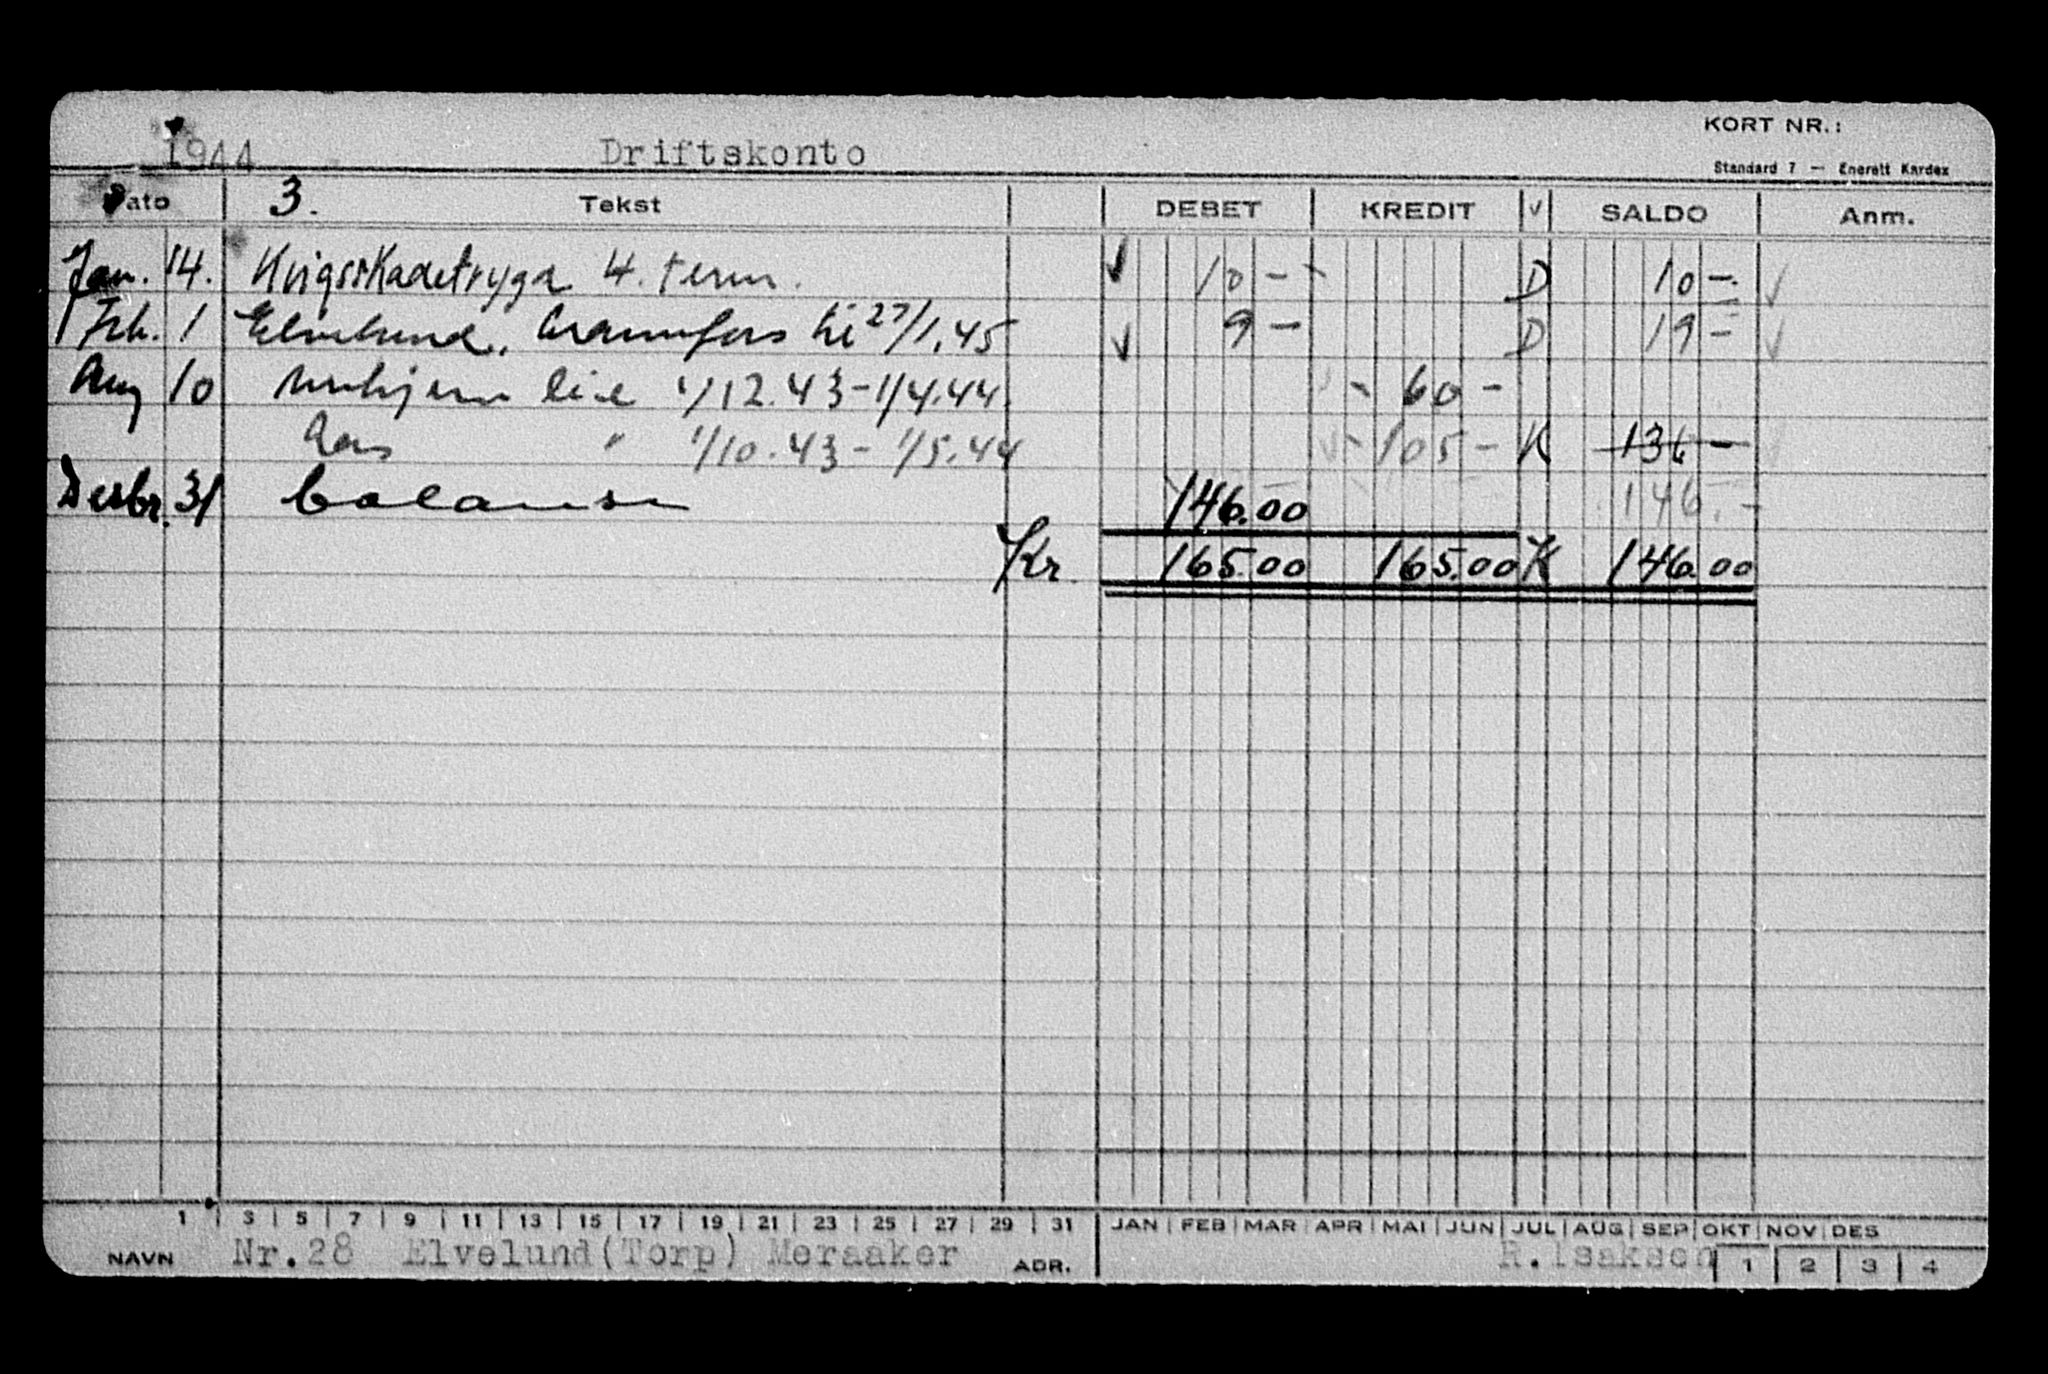 KORT NR.:
1944 Driftskonto
Standard 7 — Enerett Kardex
Dato 3. Tekst DEBET KREDIT √ SALDO Anm.
Jan. 14. Krigsskadetrygd 4. term. 10 - D 10 -
Feb. 1 Elvelund, brannfors til 27/1.45 9 - D 19 -
Aug 10 leie 1/12.43 - 1/4.44 60 -
Aas " 1/10.43 - 1/5.44 105 - K 136 -
Desbr. 31 balanse 146.00 146.-
Kr. 165.00 165.00 K 146.00
1 3 5 7 9 11 13 15 17 19 21 23 25 27 29 31 JAN FEB MAR APR MAI JUN JUL AUG SEP OKT NOV DES
NAVN Nr.28 Elvelund(Torp) Meraaker ADR. R.Isaksen 1 2 3 4